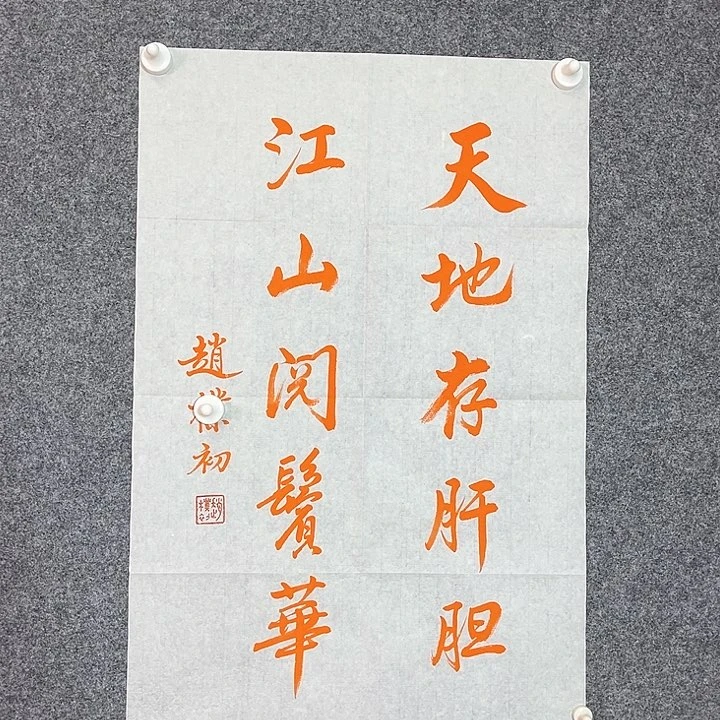 天地存肝胆
江山阅鬓華
趙初